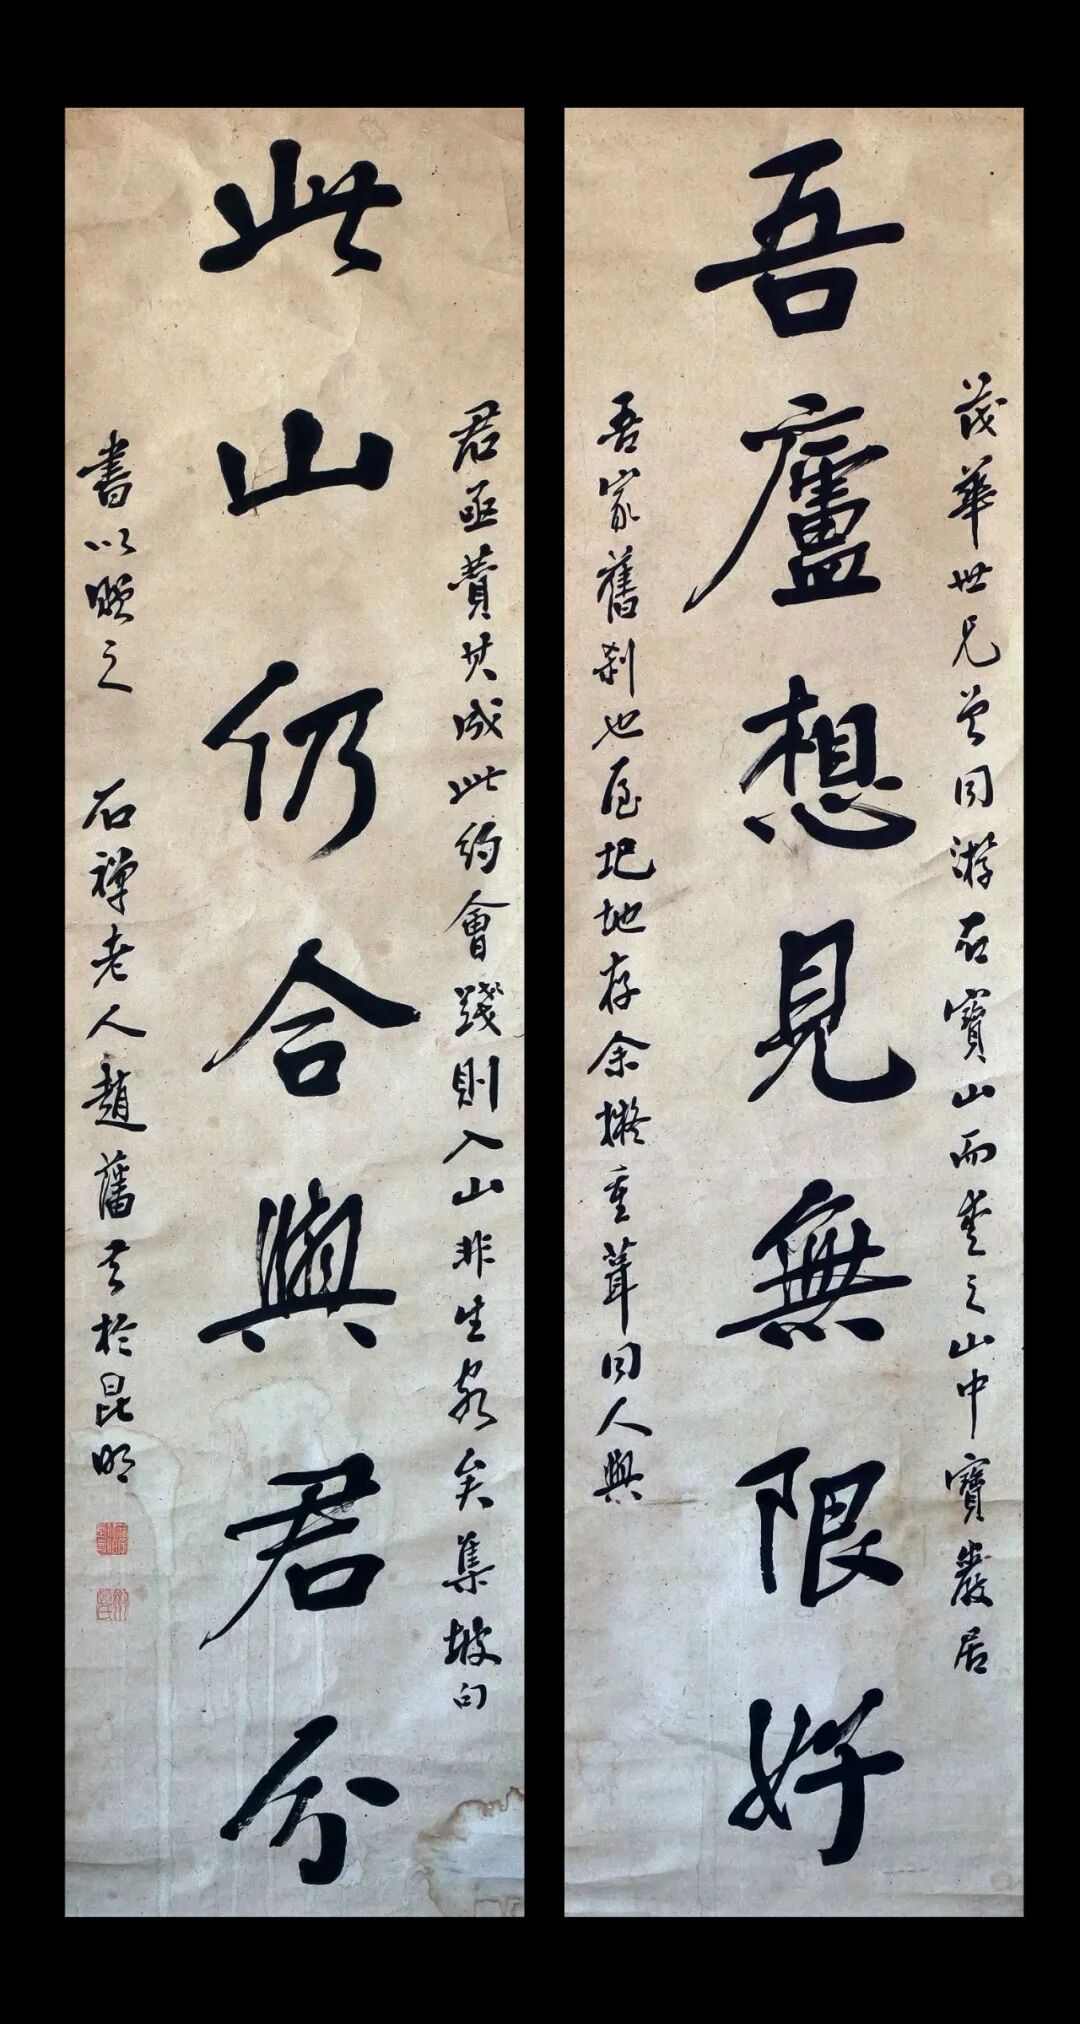 茂華世兄曾同游石寶山而愛之山中寶巖居
吾廬想見無限好
吾家舊刹也屋圮地存余擬重葺同人與
君亟贊其成此約會踐則入山非生客矣集坡句
此山仍合與君分
書以贈之 石禪老人趙藩書於昆明